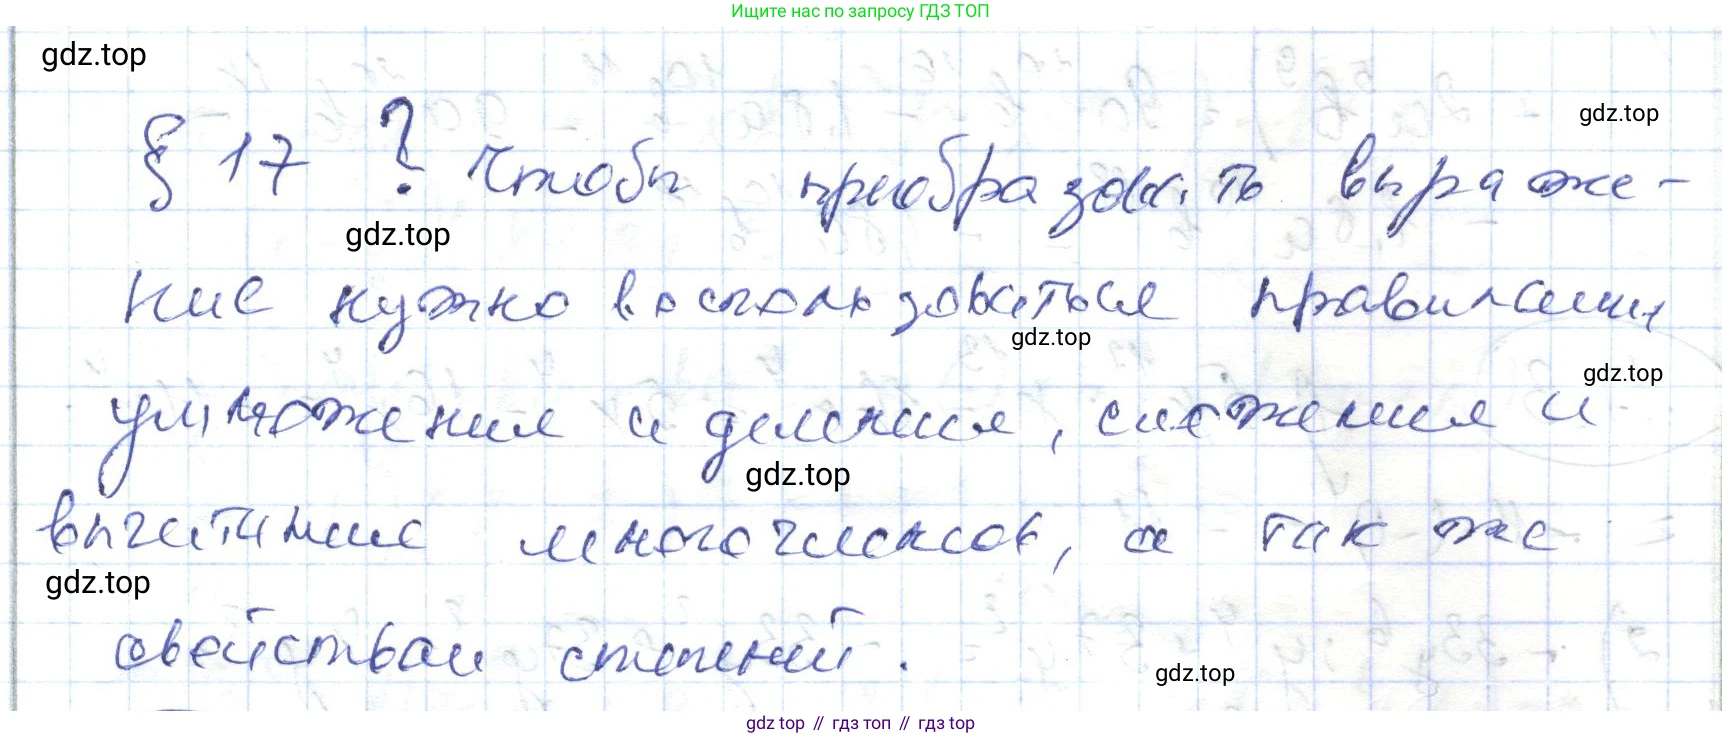 Ищите нас по запросу ГДЗ ТОП
gdz.top
gdz.top
§ 17 ? Чтобы преобразовать выраже-
gdz.top
ние нужно воспользоваться правилами
gdz.top
gdz.top
умножения и деления, сложения и
gdz.top
вычитания многочленов, а так же
gdz.top
свойствами степеней.
gdz.top
gdz top // гдз топ // гдз top